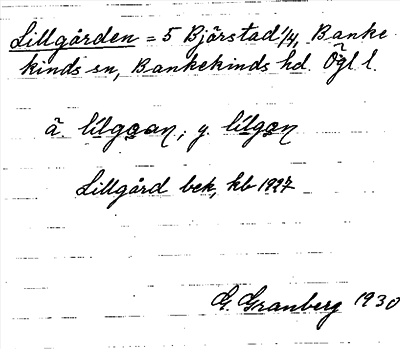 Lillgården = 5 Björstad 1/4, Banke-
kinds sn, Bankekinds hd. Ögl l.
ä. lilgoan, y. lilgan
Lillgård bek, kb 1927
G. Granberg 1930